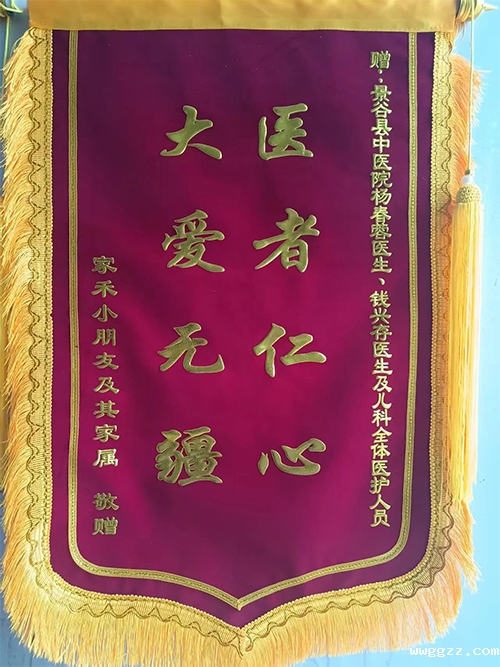 赠：景谷县中医院杨春蓉医生、钱兴存医生及儿科全体医护人员
医者仁心
大爱无疆
家禾小朋友及其家属 敬赠
wwggzz.com